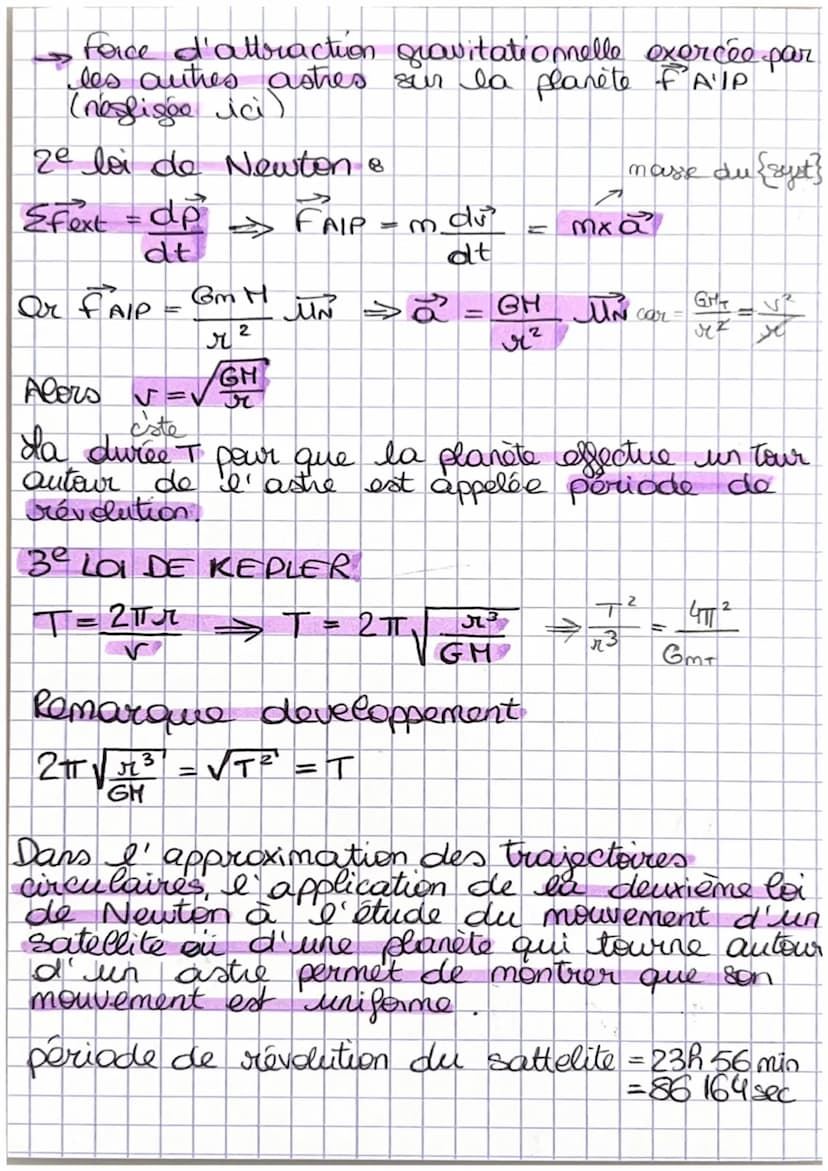 → Force d'attraction gravitationnelle exercée par
les autres astres sur la planète F⃗ A'/P
(négligée ici)
2e loi de Newton :
masse du {syst}
ΣF⃗ext = dp⃗/dt ⇒ F⃗A/P = m dv⃗/dt = m×a⃗
Or F⃗A/P = GmM/r² u⃗N ⇒ a⃗ = GM/r² u⃗N car = GMT/r² = v²/r
Alors v = √(GM/r)
cste
La durée T pour que la planète effectue un tour
autour de l'astre est appelée période de
révolution.
3e LOI DE KEPLER
T = 2πr/v ⇒ T = 2π√(r³/GM) ⇒ T²/r³ = 4π²/GmT
Remarque developpement
2π√(r³/GM) = √T² = T
Dans l'approximation des trajectoires
circulaires, l'application de la deuxième loi
de Newton à l'étude du mouvement d'un
satellite où d'une planète qui tourne autour
d'un astre permet de montrer que son
mouvement est uniforme.
période de révolution du sattelite = 23h 56 min
= 86 164 sec